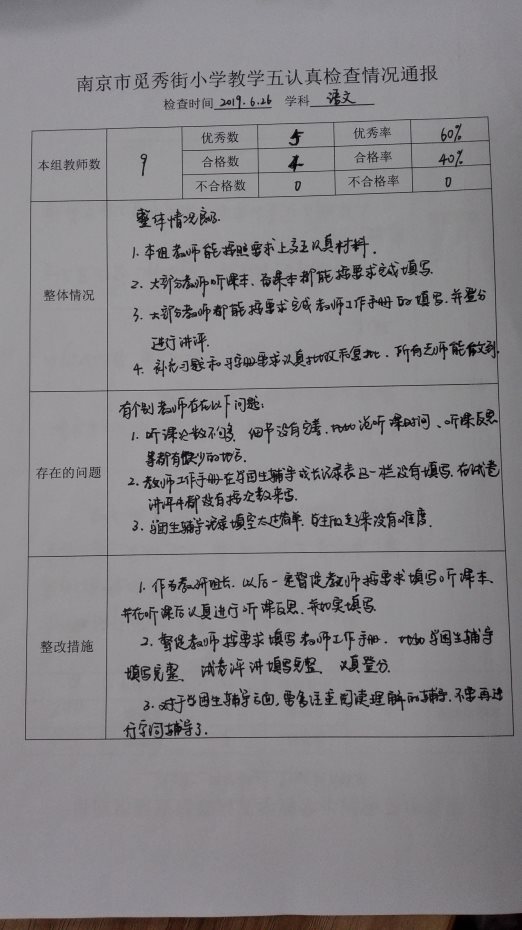 南京市觅秀街小学教学五认真检查情况通报
检查时间 2019.6.26 学科 语文
本组教师数 9 优秀数 5 优秀率 60%
合格数 4 合格率 40%
不合格数 0 不合格率 0
整体情况
整体情况良好.
1.本组教师能按照要求上交五认真材料.
2.大部分教师听课本、备课本都能按要求完成填写.
3.大部分教师都能按要求完成教师工作手册的填写.并登分
进行讲评.
4.补充习题和习字册要求认真批改和复批.所有老师能做到.
存在的问题
有个别教师存在以下问题:
1.听课次数不够,细节没有完善.比如说听课时间、听课反思
等都有缺少的地方.
2.教师工作手册在学困生辅导成长记录表这一栏没有填写.在试卷
讲评中都没有按次数来写.
3.学困生辅导记录填空太过简单.与生放起来没有难度.
整改措施
1.作为教研组长.以后一定督促教师按要求填写听课本.
并在听课后认真进行听课反思.并如实填写.
2.督促教师按要求填写教师工作手册.比如学困生辅导
填写完整、试卷评讲填写完整、认真登分.
3.对于学困生辅导方面,要多注重阅读理解的辅导.不要再进
行字词辅导了.